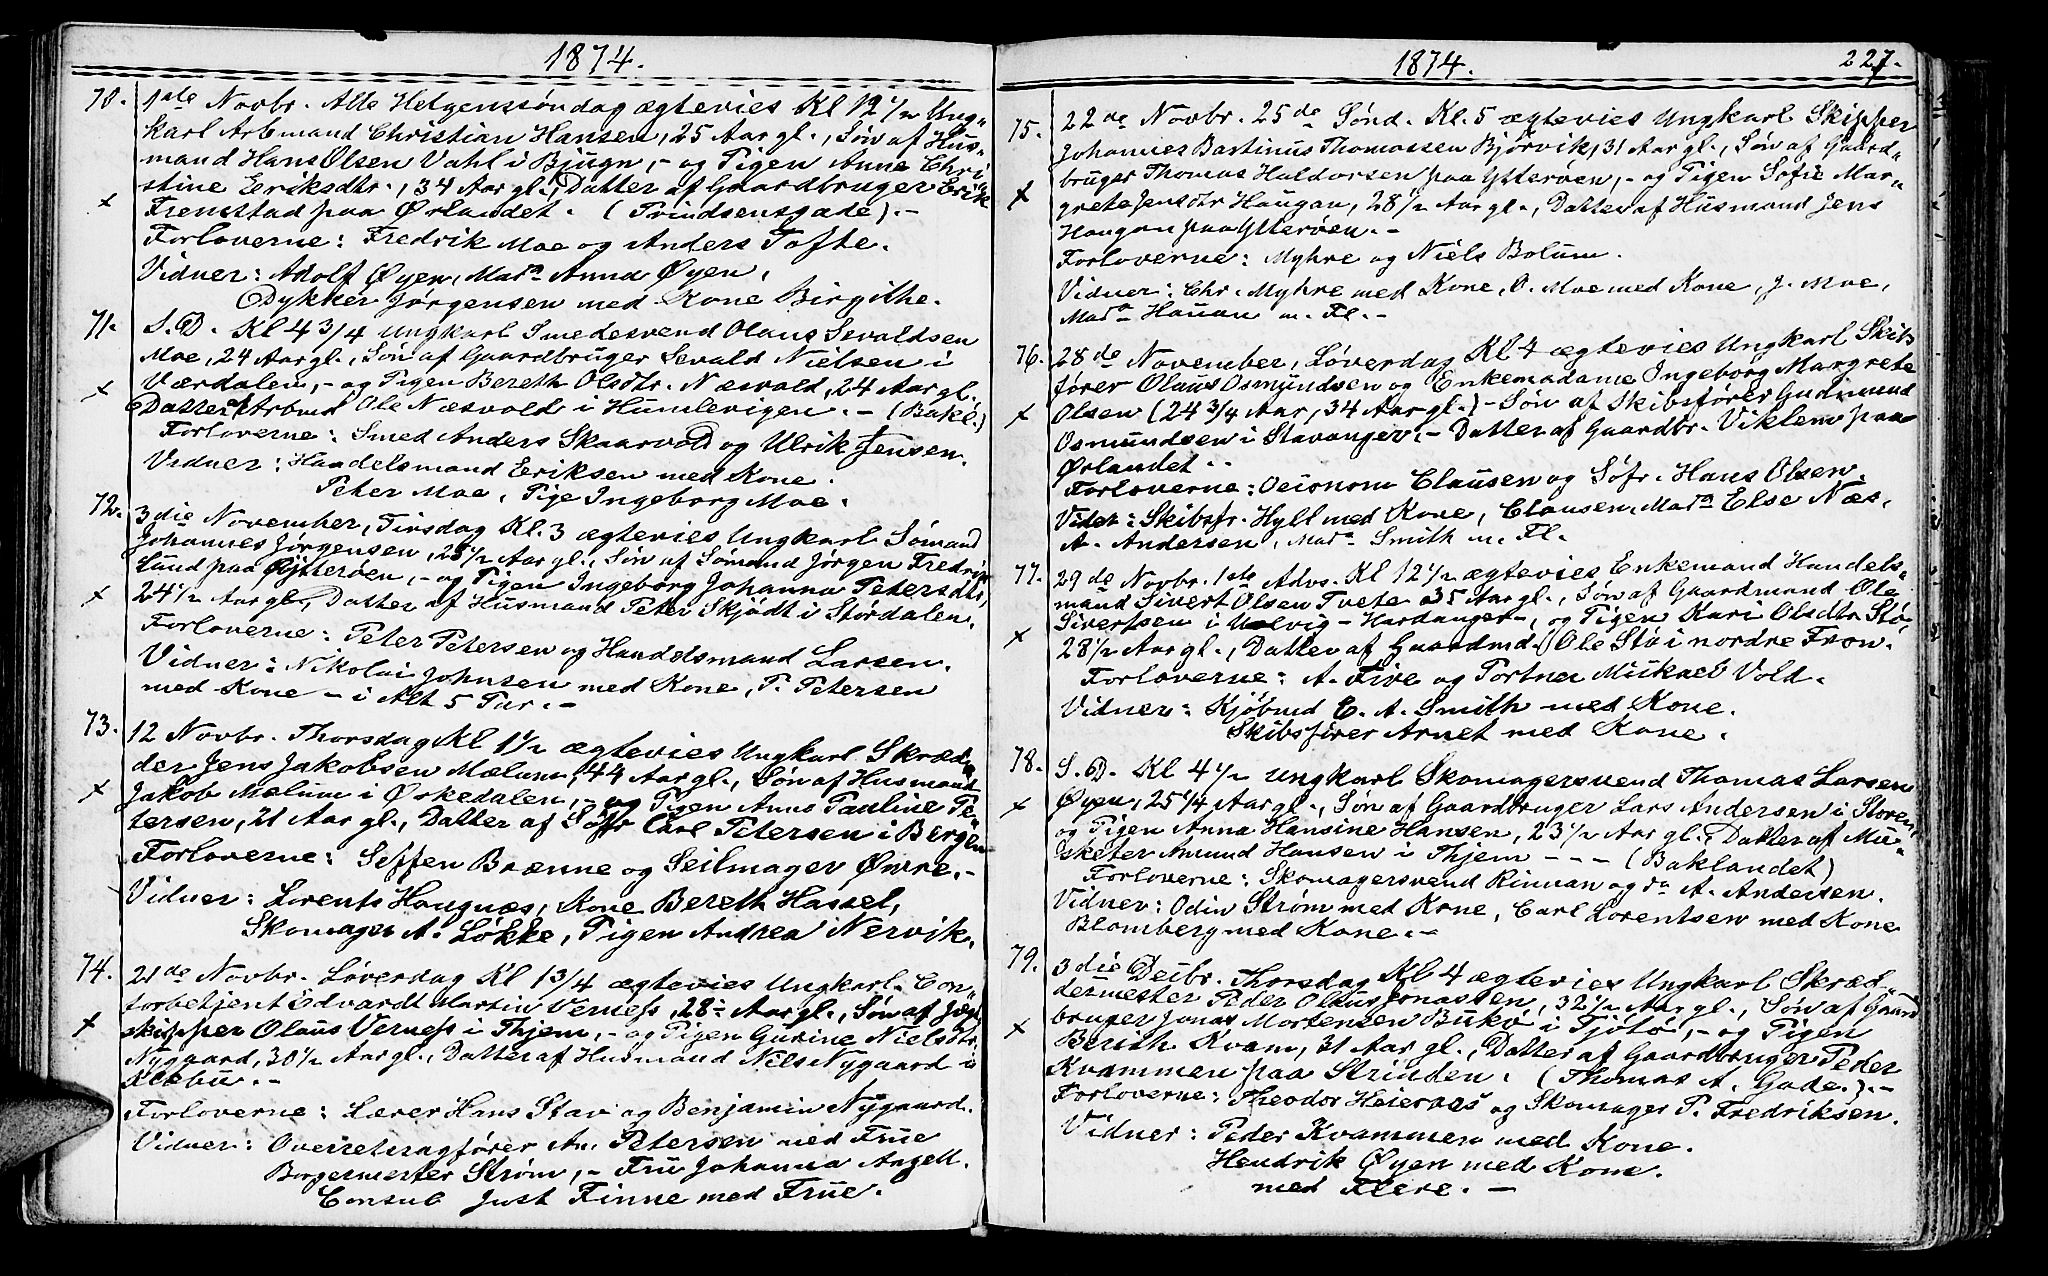 1874.
70. 1ste Novbr. Alle Helgenssöndag ægtevies Kl 12 1/2 Ung-
karl Arbmand Christian Hansen, 25 Aar gl., Søn af Hus-
mand Hans Olsen Vahl i Bjugn, - og Pigen Anne Chri
stine Eriksdtr., 34 Aar gl., Datter af Gaardbruger Erik
x Fremstad paa Ørlandet. (Trindsensgade). -
Forloverne: Fredrik Moe og Anders Tofte.
Vidner: Adolf Øyen, Mada Anna Øyen,
Dykker Jørgensen med Kone Birgithe.
71. S. D. Kl 4 3/4 Ungkarl Smedesvend Olaus Sevaldsen
Moe, 24 Aar gl., Søn af Gaardbruger Sevald Nielsen i
x Værdalen, - og Pigen Bereth Olsdtr. Næsvold, 24 Aar gl.
Datter af Arbmd Ole Næsvold i Humlevigen. - (Bakl.)
Forloverne: Smed Anders Skaarvold og Ulrik Jensen.
Vidner: Handelsmand Eriksen med Kone.
Peter Moe, Pige Ingeborg Moe.
72. 3die November, Tirsdag Kl. 3 ægtevies Ungkarl Sømand
Johannes Jørgensen, 25 1/2 Aar gl., Søn af Sømand Jørgen Fredrik
Lund paa Ytterøen, - og Pigen Ingeborg Johanna Petersdtr,
x 24 1/2 Aar gl., Datter af Husmand Peter Skjödt i Stördalen.
Forloverne: Peter Petersen og Handelsmand Larsen.
Vidner: Nikolai Johnsen med Kone, P. Petersen
med Kone - i Alt 5 Par. -
73. 12 Novbr. Thorsdag Kl 1 1/2 ægtevies Ungkarl Skræd-
der Jens Jakobsen Mælum, 44 Aar gl., Søn af Husmand
x Jakob Mælum i Øskedalen, - og Pigen Anna Pauline Pe-
tersen, 21 Aar gl., Datter af Söfr Carl Petersen i Bergen
Forloverne: Steffen Brænne og Seilmager Øvre. -
Vidner: Lorents Haugnæs, Kone Bereth Hassel,
Skomager A. Løkke, Pigen Andrea Nervik.
74. 21de Novbr. Løverdag Kl 1 3/4 ægtevies Ungkarl. Con-
torbetjent Edvardt Martin Verness, 28 Aar gl., Søn af Jægt
x skipper Olaus Verness i Thjem, - og Pigen Gurine Nielsdtr.
Nygaard, 30 1/2 Aar gl., Datter af Husmand Niels Nygaard i
Klebu. -
Forloverne: Lærer Hans Stav og Benjamin Nygaard.
Vidner: Overretssagfører An. Petersen med Frue
Borgermester Strøm, - Fru Johanna Angell.
Consul Just Finne med Frue.
1874. 227.
75. 22de Novbr. 25de Sønd. Kl. 5 ægtevies Ungkarl Skipper
Johannes Bastinus Thomassen Bjørvik, 31 Aar gl., Søn af Gaard-
bruger Thomas Haldorsen paa Ytterøen, - og Pigen Sofie Mar-
x grete Jensdtr Haugan, 28 1/2 Aar gl., Datter af Husmand Jens
Haugan paa Ytterøen. -
Forloverne: Myhre og Niels Bolum.
Vidner: Chr. Myhre med Kone, O. Moe med Kone, J. Moe,
Mada Hauan m. Fl. -
76. 28de November, Løverdag Kl 7 ægtevies Ungkarl Skibs
fører Olaus Osmundsen og Enkemadame Ingeborg Margrete
x Olsen (24 3/4 Aar, 34 Aar gl.) - Søn af Skibsfører Gudmund
Osmundsen i Stavanger, - Datter af Gaardbr. Viklem paa
Ørlandet. -
Forloverne: Oeconom Clausen og Söfr. Hans Olsen.
Vidner: Skibsfr. Hyll med Kone, Clausen, Mada Else Næs,
A. Andersen, Mada Smith m. Fl.
77. 29de Novbr. 1ste Advs. Kl 12 1/2 ægtevies Enkemand Handels-
mand Sivert Olsen Tvete 35 Aar gl., Søn af Gaardmand Ole
Sivertsen i Ulvig - Hardanger -, og Pigen Kari Olsdtr Stö,
x 28 1/2 Aar gl., Datter af Gaardmd. Ole Stö i nordre Fron.
Forloverne: A. Five og Portner Mikael Vold.
Vidner: Kjöbmd E. A. Smith med Kone.
Skibsfører Arnet med Kone.
78. S. D. Kl 4 1/2 Ungkarl Skomagersvend Thomas Larsen
x Øyen, 25 1/4 Aar gl., Søn af Gaardbruger Lars Andersen i Støren
og Pigen Anna Hansine Hansen, 23 1/2 Aar gl., Datter af Mu-
sketer Amund Hansen i Thjem - - - (Baklandet)
Forloverne: Skomagersvend Rinnan og da A. Andersen.
Vidner: Odin Strøm med Kone, Carl Lorentsen med Kone
Blomberg med Kone. -
79. 3die Decbr. Thorsdag Kl 4 ægtevies Ungkarl Skræd-
dermester Peder Olaus Jonassen, 32 1/2 Aar gl., Søn af Gaard
bruger Jonas Mortensen Bukø i Tjötö, - og Pigen
x Bereth Kvam, 31 Aar gl., Datter af Gaardbruger Peder
Kvammen paa Strinden. (Thomas A. Gade.). -
Forloverne: Theodor Heiernæs og Skomager P. Fredriksen.
Vidner: Peder Kvammen med Kone.
Hendrik Øyen med Kone.
med Flere. -